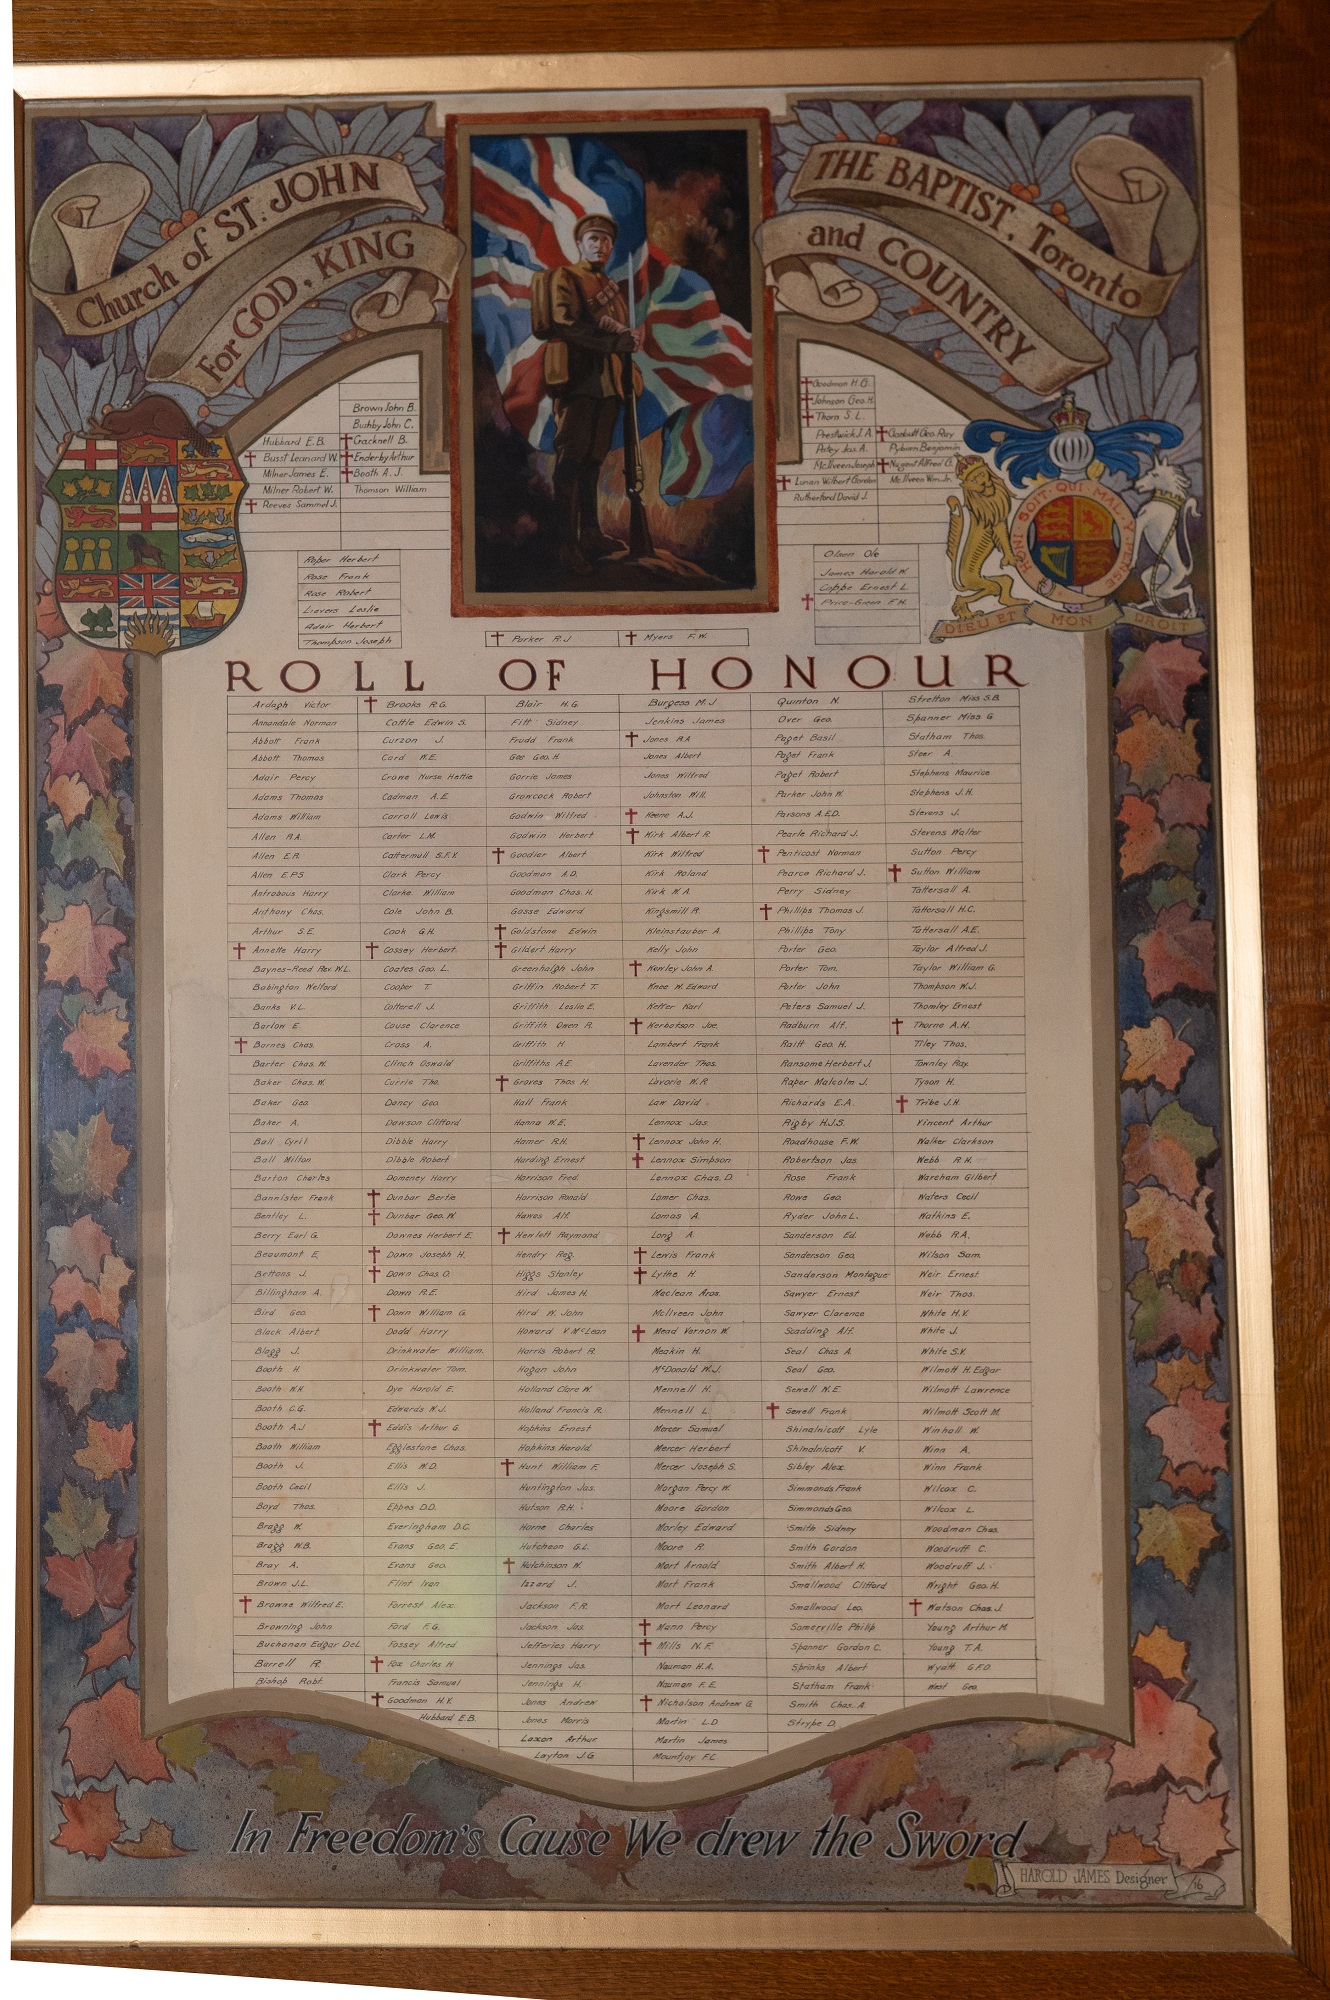 Church of ST. JOHN
THE BAPTIST, Toronto
For GOD, KING
and COUNTRY
Brown John B.
Bushby John C.
Hubbard E.B. Cracknell B.
Busst Leonard W. Enderby Arthur
Milner James E. Booth A. J.
Milner Robert W. Thomson William
Reeves Sammel J.
Goodman H.G.
Johnson Geo. H.
Thorn S. L.
Prestwick J.A. Garbutt Geo. Ray
Patey Jas A. Pyburn Benjamin
McIlveen Joseph Nugent Alfred G.
Lunan Wilbert Gordon McIlveen Wm. Jr.
Rutherford David J.
HONI SOIT QUI MAL Y PENSE
DIEU ET MON DROIT
Roper Herbert
Rose Frank
Rose Robert
Lievers Leslie
Adair Herbert
Thompson Joseph
Olsen Ole
James Harold W.
Coppe Ernest L.
Price-Green F.H.
Parker R.J Myers F.W.
ROLL OF HONOUR
Ardagh Victor Brooks R.G. Blair H.G. Burgess M.J Quinton N. Stretton Miss S.B.
Annandale Norman Cottle Edwin S. Fitt Sidney Jenkins James Over Geo. Spanner Miss G
Abbott Frank Curzon J. Frudd Frank Jones R.A Paget Basil Statham Thos.
Abbott Thomas Card W.E. Gee Geo. H Jones Albert Paget Frank Steer A.
Adair Percy Crowe Nurse Hettie Gorrie James Jones Wilfred Paget Robert Stephens Maurice
Adams Thomas Cadman A.E. Growcock Robert Johnston Will. Parker John W. Stephens J.H.
Adams William Carroll Lewis Godwin Wilfred Keene A.J. Parsons A.E.D. Stevens J.
Allen R.A. Carter L.M. Godwin Herbert Kirk Albert R. Pearle Richard J. Stevens Walter
Allen E.R. Cattermull S.F.V. Goodier Albert Kirk Wilfred Penticost Norman Sutton Percy
Allen E.P.S. Clark Percy Goodman A.D. Kirk Roland Pearce Richard J. Sutton William
Antrobous Harry Clarke William Goodman Chas. H. Kirk W.A. Perry Sidney Tattersall A.
Anthony Chas. Cole John B. Gosse Edward Kingsmill R. Phillips Thomas J. Tattersall H.C.
Arthur S.E. Cook G.H. Goldstone Edwin Kleinstauber A. Phillips Tony Tattersall A.E.
Annette Harry Cossey Herbert. Gilbert Harry Kelly John Porter Geo. Taylor Alfred J.
Baynes-Reed Rev. W.L. Coates Geo. L. Greenhalgh John Kewley John A. Porter Tom. Taylor William G.
Babington Welford Cooper T. Griffin Robert T. Knee W. Edward Porter John Thompson W.J.
Banks V.L. Cotterell J. Griffith Leslie E. Keffer Karl Peters Samuel J. Thomley Ernest
Barlow E. Couse Clarence Griffith Owen R. Herbotson Joe Radburn Alf. Thorne A.H.
Barnes Chas. Cross A. Griffith H Lambert Frank Raitt Geo. H. Tiley Thos.
Barter Chas. W. Clinch Oswald Griffiths A.E. Lavender Thos. Ransome Herbert J. Townley Ray.
Baker Chas. W. Currie Tho. Groves Thos H. Lavorie W.R Raper Malcolm J. Tyson H.
Baker Geo Dancy Geo. Hall Frank Law David Richards E.A. Tribe J.H.
Baker A. Dawson Clifford Hanna W.E. Lennox Jas Rigby H.J.S. Vincent Arthur
Ball Cyril Dibble Harry Hamer R.H. Lennox John H. Roadhouse F.W. Walker Clarkson
Ball Milton Dibble Robert Harding Ernest Lennox Simpson Robertson Jas. Webb R.H.
Barton Charles Domeney Harry Harrison Fred. Lennox Chas. D. Rose Frank Wareham Gilbert
Bannister Frank Dunbar Bertie Harrison Ronald Lomer Chas. Rowe Geo. Waters Cecil
Bentley L. Dunbar Geo. W. Hawes Alf. Lomas A. Ryder John L. Watkins E.
Berry Earl G. Downes Herbert E. Hewlett Raymond Long A. Sanderson Ed. Webb R.A.
Beaumont E. Down Joseph H. Hendry Reg. Lewis Frank Sanderson Geo. Wilson Sam.
Bettons J. Down Chas. O. Higgs Stanley Lythe H Sanderson Montague Weir Ernest
Billingham A. Down R.E. Hird James H. Maclean Aros. Sawyer Ernest Weir Thos.
Bird Geo. Down William G. Hird W. John McIlveen John Sawyer Clarence White H.V.
Black Albert Dodd Harry Howard V. McLean Mead Vernon W. Scadding Alf. White J.
Blagg J. Drinkwater William. Harris Robert R. Meakin H. Seal Chas A. White S.V.
Booth H. Drinkwater Tom. Hogan John McDonald W.J. Seal Geo. Wilmott H. Edgar
Booth W.H. Dye Harold E. Holland Clare W. Mennell H. Sewell N.E. Wilmott Lawrence
Booth C.G. Edwards W.J. Holland Francis R. Mennell L. Sewell Frank Wilmott Scott M.
Booth A.J Eddis Arthur G. Hopkins Ernest Mercer Samuel Shinalnicoff Lyle Winhall W.
Booth William Egglestone Chas. Hopkins Harold Mercer Herbert Shinalnicoff V. Winn A.
Booth J. Ellis W.D. Hunt William F. Mercer Joseph S. Sibley Alex Winn Frank
Booth Cecil Ellis J. Huntington Jas. Morgan Percy W. Simmonds Frank Wilcox C.
Boyd Thos. Ebbes D.D. Hutson R.H. Moore Gordon Simmonds Geo. Wilcox L.
Bragg W. Everingham D.C. Horne Charles Morley Edward Smith Sidney Woodman Chas.
Bragg W.B. Evans Geo. E. Hutcheon G.L. Moore R. Smith Gordon Woodruff C.
Bray A. Evans Geo. Hutchinson W. Mort Arnold Smith Albert H. Woodruff J.
Brown J.L. Flint Ivan Izzard J. Mort Frank Smallwood Clifford Wright Geo. H.
Browne Wilfred E. Forrest Alex. Jackson F.R. Mort Leonard Smallwood Leo. Watson Chas. J.
Browning John Ford F.G. Jackson Jas Mann Percy Somerville Philip Young Arthur M
Buchanan Edgar DeL. Fossey Alfred Jefferies Harry Mills N.F. Spanner Gordon C. Young T.A.
Burrell R. Fox Charles H Jennings Jas. Nauman H.A. Sprinks Albert Wyatt G.F.O.
Bishop Robt. Francis Samuel Jennings H. Nauman F.E. Statham Frank West Geo.
Goodman H.V. Jones Andrew Nicholson Andrew G. Smith Chas. A.
Hubbard E.B. Jones Morris Martin L.D Strype D.
Laxon Arthur Martin James
Layton J.G Mountjoy F.C.
In Freedom's Cause We drew the Sword
HAROLD JAMES Designer /16